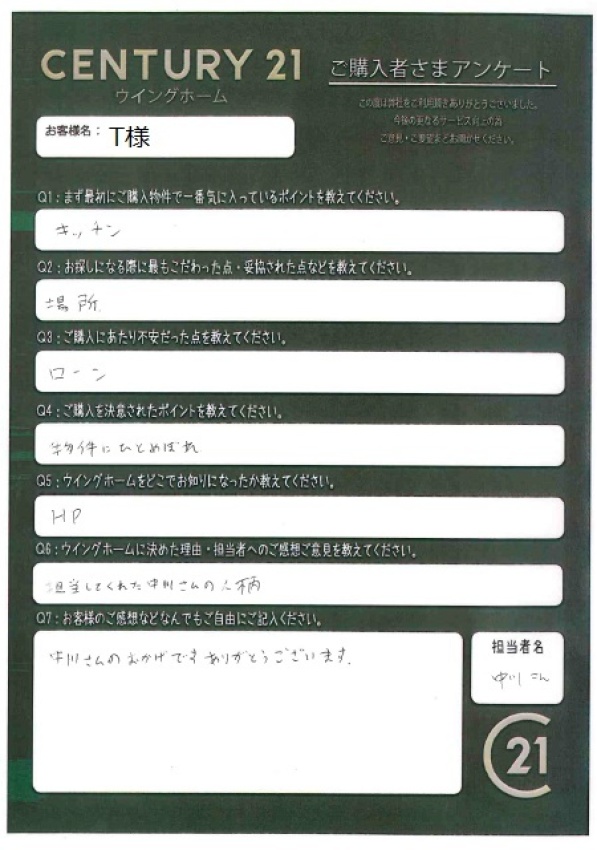 CENTURY 21
ウイングホーム
ご購入者さまアンケート
この度は弊社をご利用頂きありがとうございました。
今後の更なるサービス向上の為
ご意見・ご要望をお聞かせください。
お客様名： T様
Q1：まず最初にご購入物件で一番気に入っているポイントを教えてください。
キッチン
Q2：お探しになる際に最もこだわった点・妥協された点などを教えてください。
場所
Q3：ご購入にあたり不安だった点を教えてください。
ローン
Q4：ご購入を決意されたポイントを教えてください。
物件にひとめぼれ
Q5：ウイングホームをどこでお知りになったか教えてください。
HP
Q6：ウイングホームに決めた理由・担当者へのご感想ご意見を教えてください。
担当してくれた中川さんの人柄
Q7：お客様のご感想などなんでもご自由にご記入ください。
中川さんのおかげです ありがとうございます.
担当者名
中川さん
C21